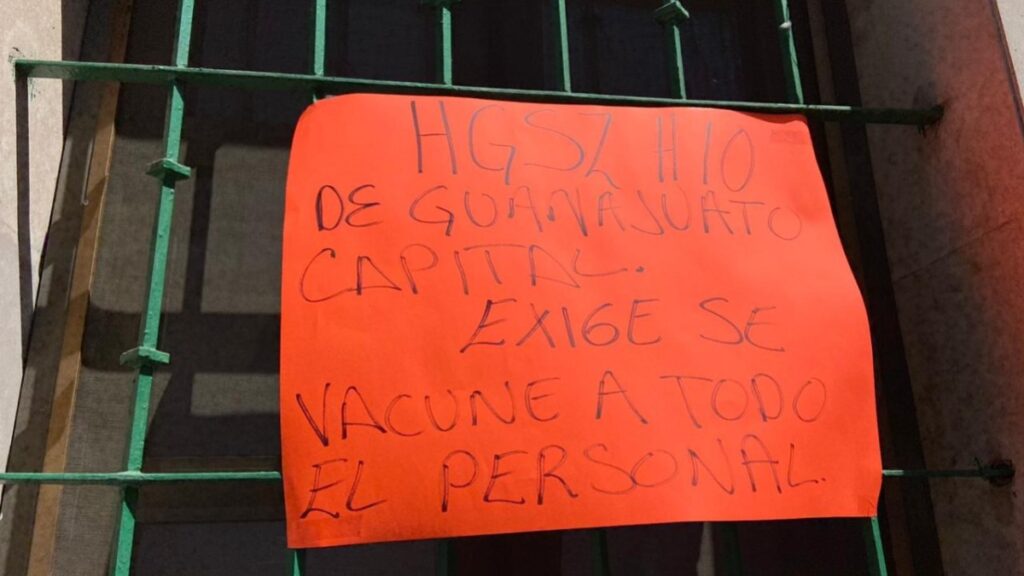 HGSZ #10
DE GUANAJUATO
CAPITAL.
EXIGE SE
VACUNE A TODO
EL PERSONAL.